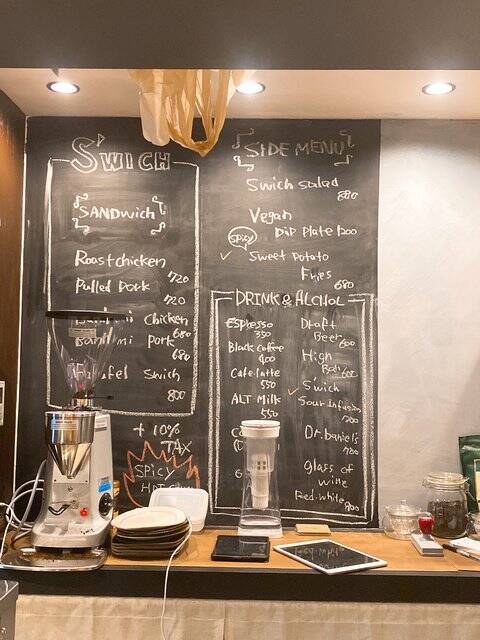 S'WICH
SANDWICH
Roast chicken
720
Pulled Pork
720
mi chicken
680
mi Pork
680
fel Swich
800
+ 10%
TAX
SPICY
SIDE MENU
Swich Salad
880
Vegan
Dip Plate 1200
SPICY
✓ Sweet Potato
Fries
680
DRINK & ALCHOL
Espresso
350
Black coffee
400
Cafe latte
550
ALT-Milk
550
Draft
Beer 600
High
Ball 600
✓ S'wich
Sour Infusion
700
Dr. Daniel's
700
glass of
wine
Red. white
800